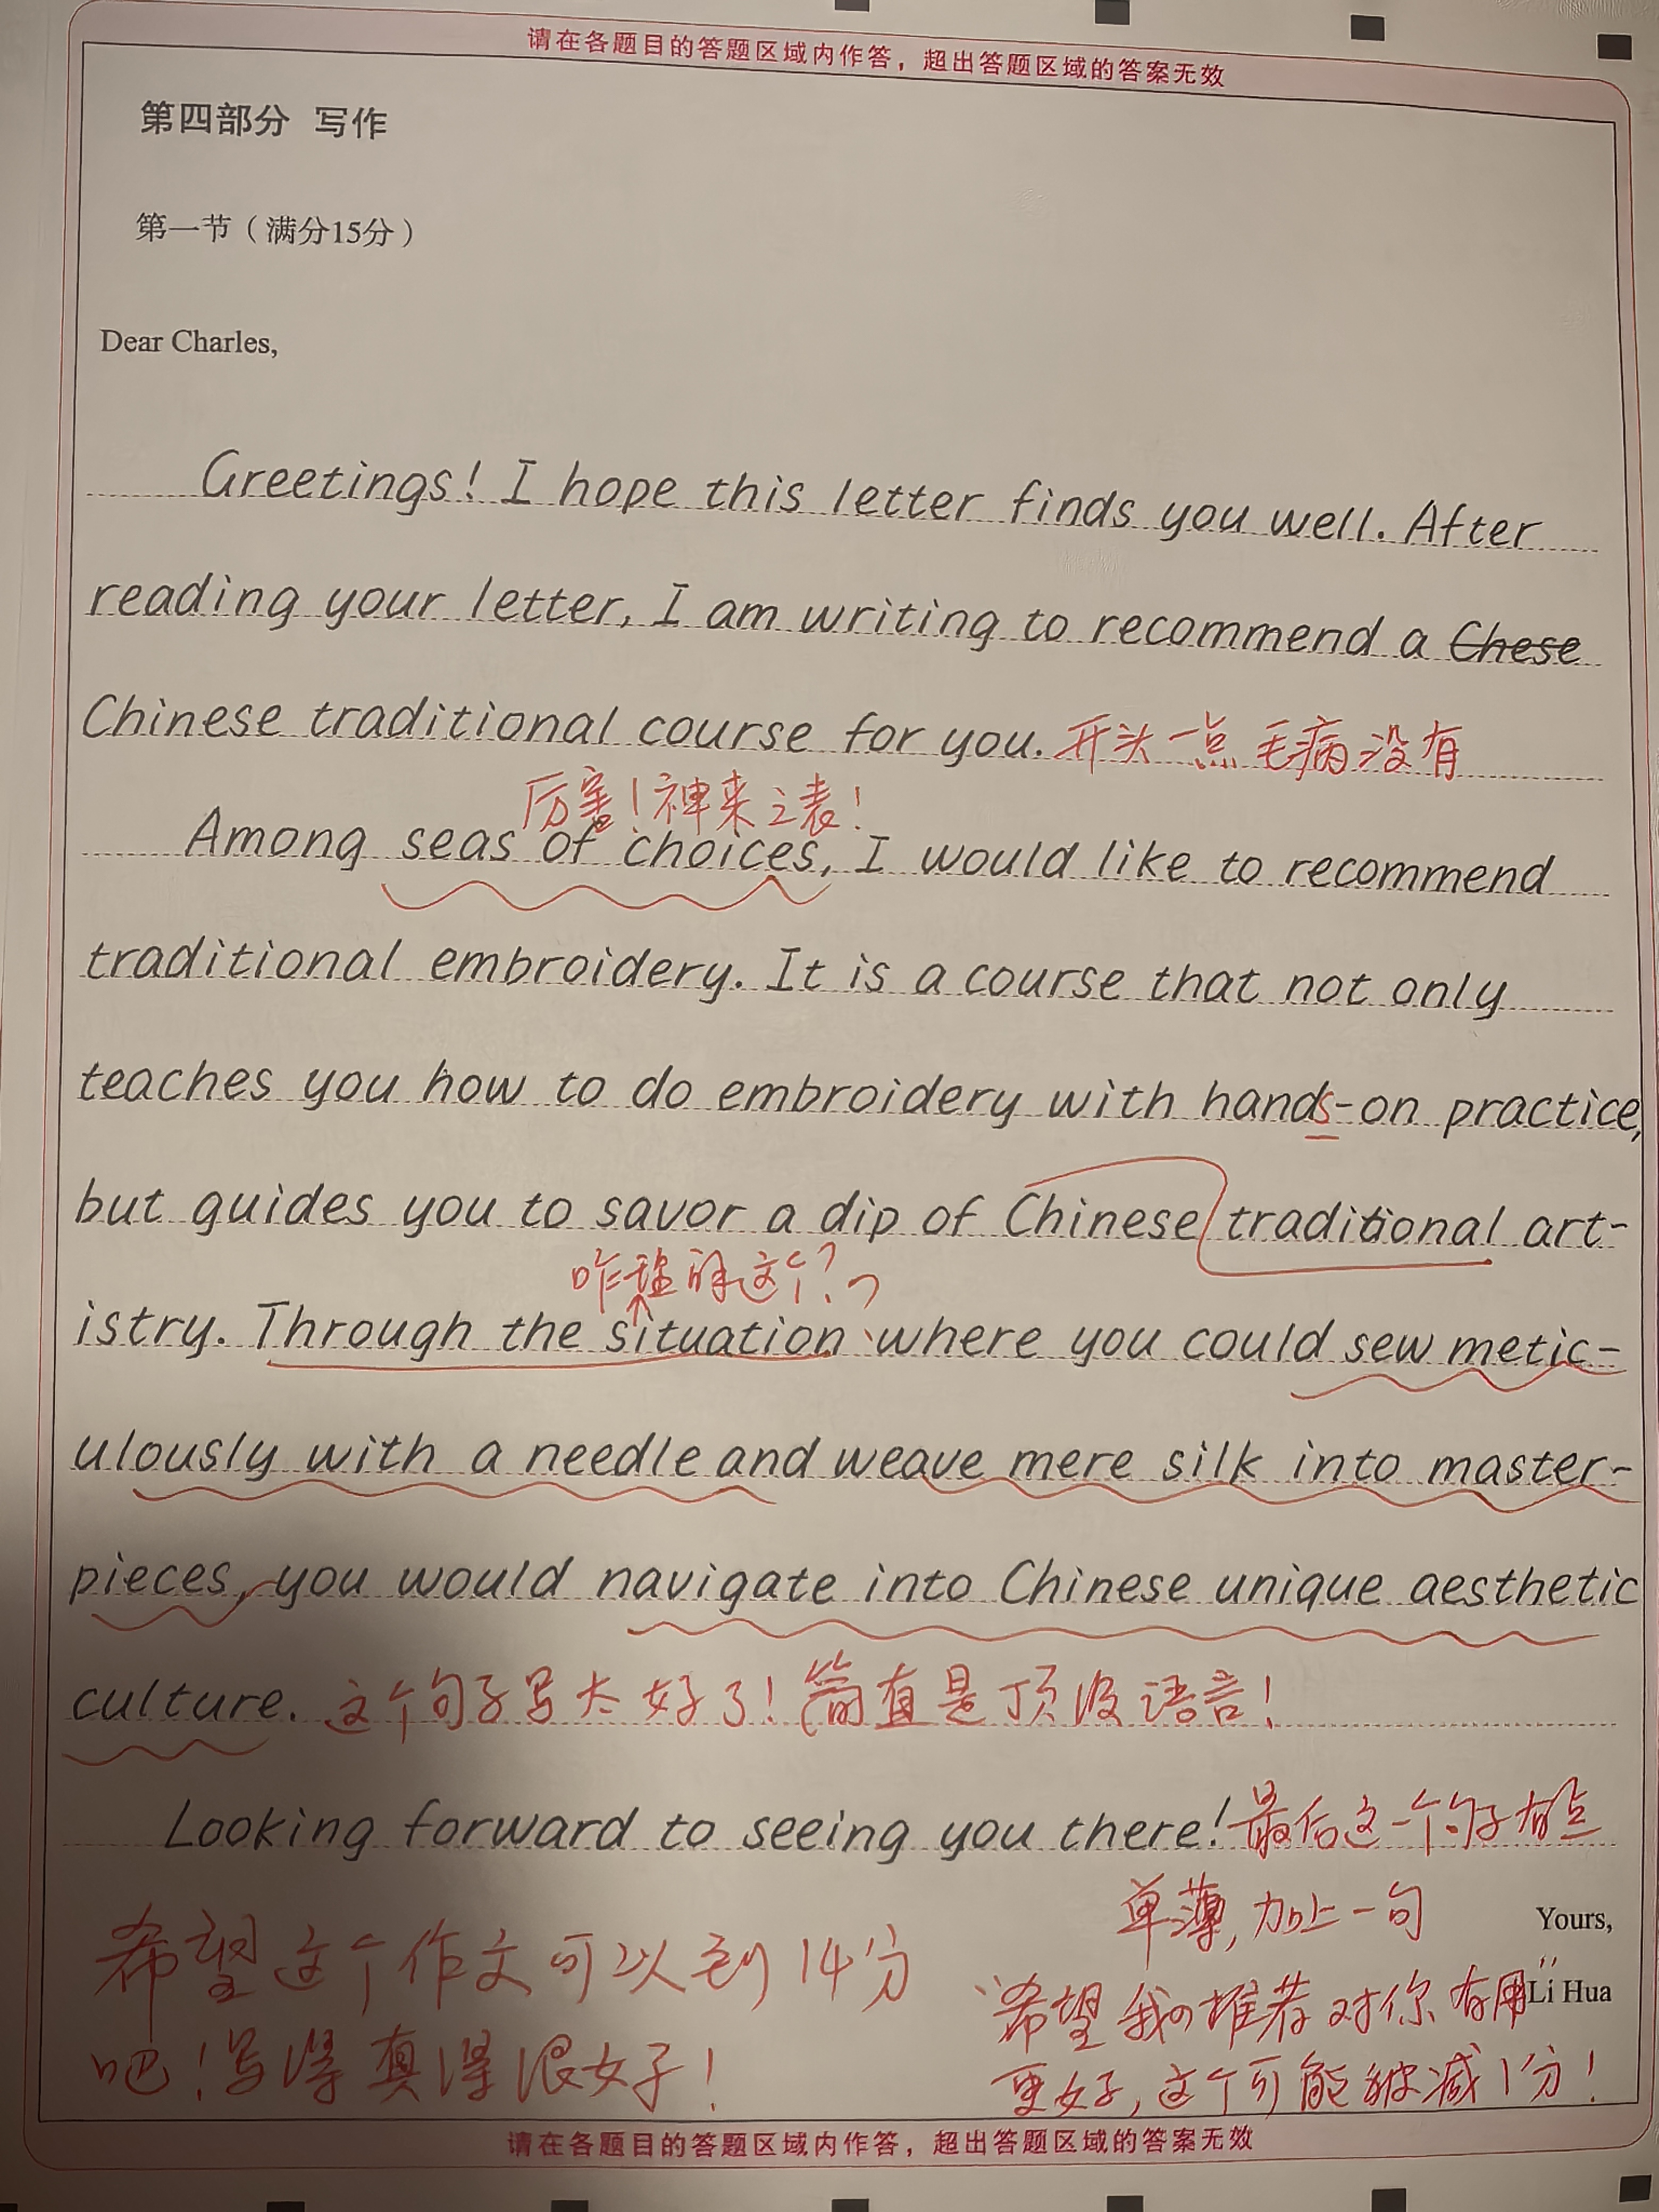 请在各题目的答题区域内作答，超出答题区域的答案无效
第四部分 写作
第一节（满分15分）
Dear Charles,
Greetings! I hope this letter finds you well. After
reading your letter, I am writing to recommend a Chese
Chinese traditional course for you. 开头一点毛病没有
厉害！神来之表！
Among seas of choices, I would like to recommend
traditional embroidery. It is a course that not only
teaches you how to do embroidery with hands-on practice,
but guides you to savor a dip of Chinese traditional art-
istry. Through the situation where you could sew metic-
咋整的这个？
ulously with a needle and weave mere silk into master-
pieces, you would navigate into Chinese unique aesthetic
culture. 这个句子写太好了！简直是顶级语言！
Looking forward to seeing you there! 最后这一个句子有点
单薄，加上一句
Yours,
“希望我的推荐对你有用”
Li Hua
更好，这个可能被减1分！
希望这个作文可以到14分
吧！写得真得很好！
请在各题目的答题区域内作答，超出答题区域的答案无效